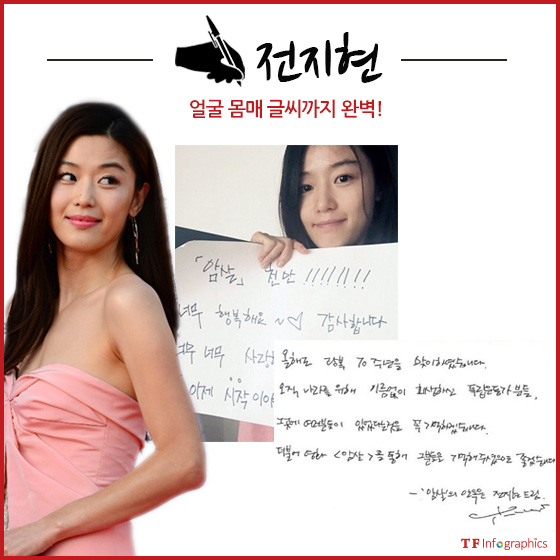 전지현
얼굴 몸매 글씨까지 완벽!
「암살」 천만 !!!!!!!!
너무 행복해요~♡ 감사합니다
너무 너무 사랑
이제 시작이야
올해로 광복 70주년을 맞이하였습니다.
오직 나라를 위해 이름없이 희생하신 독립운동가분들,
그곳에 여러분들이 있었다는 것을 꼭 기억하겠습니다.
더불어 영화 <암살>을 통해 그분들을 기억해주셨으면 좋겠습니다
- '암살'의 안옥윤 전지현 드림.
TF Infographics